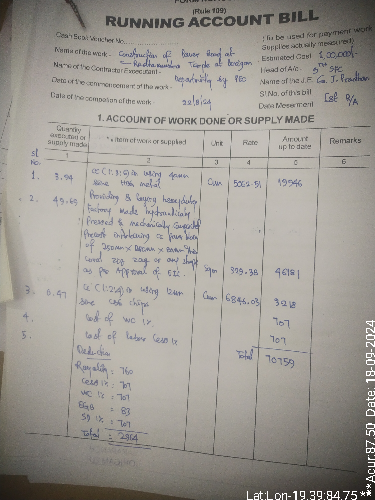 (Rule 109)
RUNNING ACCOUNT BILL
Cash Book Voucher No.
(To be used for payment work
Supplies actually measured)
Name of the work - Construction of Paver Road at
Estimated Cost 1,00,000/-
Name of the Contractor Executant - Departmentally by PEO
Head of A/c - 5th SFC
Name of the J.E. G. J. Pradhan
Date of the commencement of work -
Sl No. of this bill
Date of the competion of the work 22/8/24
Date Meserment 1st R/A
1. ACCOUNT OF WORK DONE OR SUPPLY MADE
Quantity executed or supply made
Item of work or supplied
Unit
Rate
Amount up to date
Remarks
Sl No.
1 2 3 4 5 6
1. 3.94 CC (1:3:6) in using 40mm size HG metal Cum 5062.51 19946
2. Providing & laying hexagular
factory made hydraulically
pressed & mechanically
as per Approval of EIC. Sqm 929.38 46181
3. 0.47 CC (1:2:4) in using 12mm Cum 6846.03 3218
size chips
4. Cost of WC 1% 707
5. Cost of Labour Cess 1% 707
Total 70759
Deduction
Royality = 760
Cess 1% = 707
WC 1% = 707
EGB = 83
SD 1% = 707
Total = 2964
Lat:Lon-19.39:84.75
***Acur:87.50 Date 18-09-2024